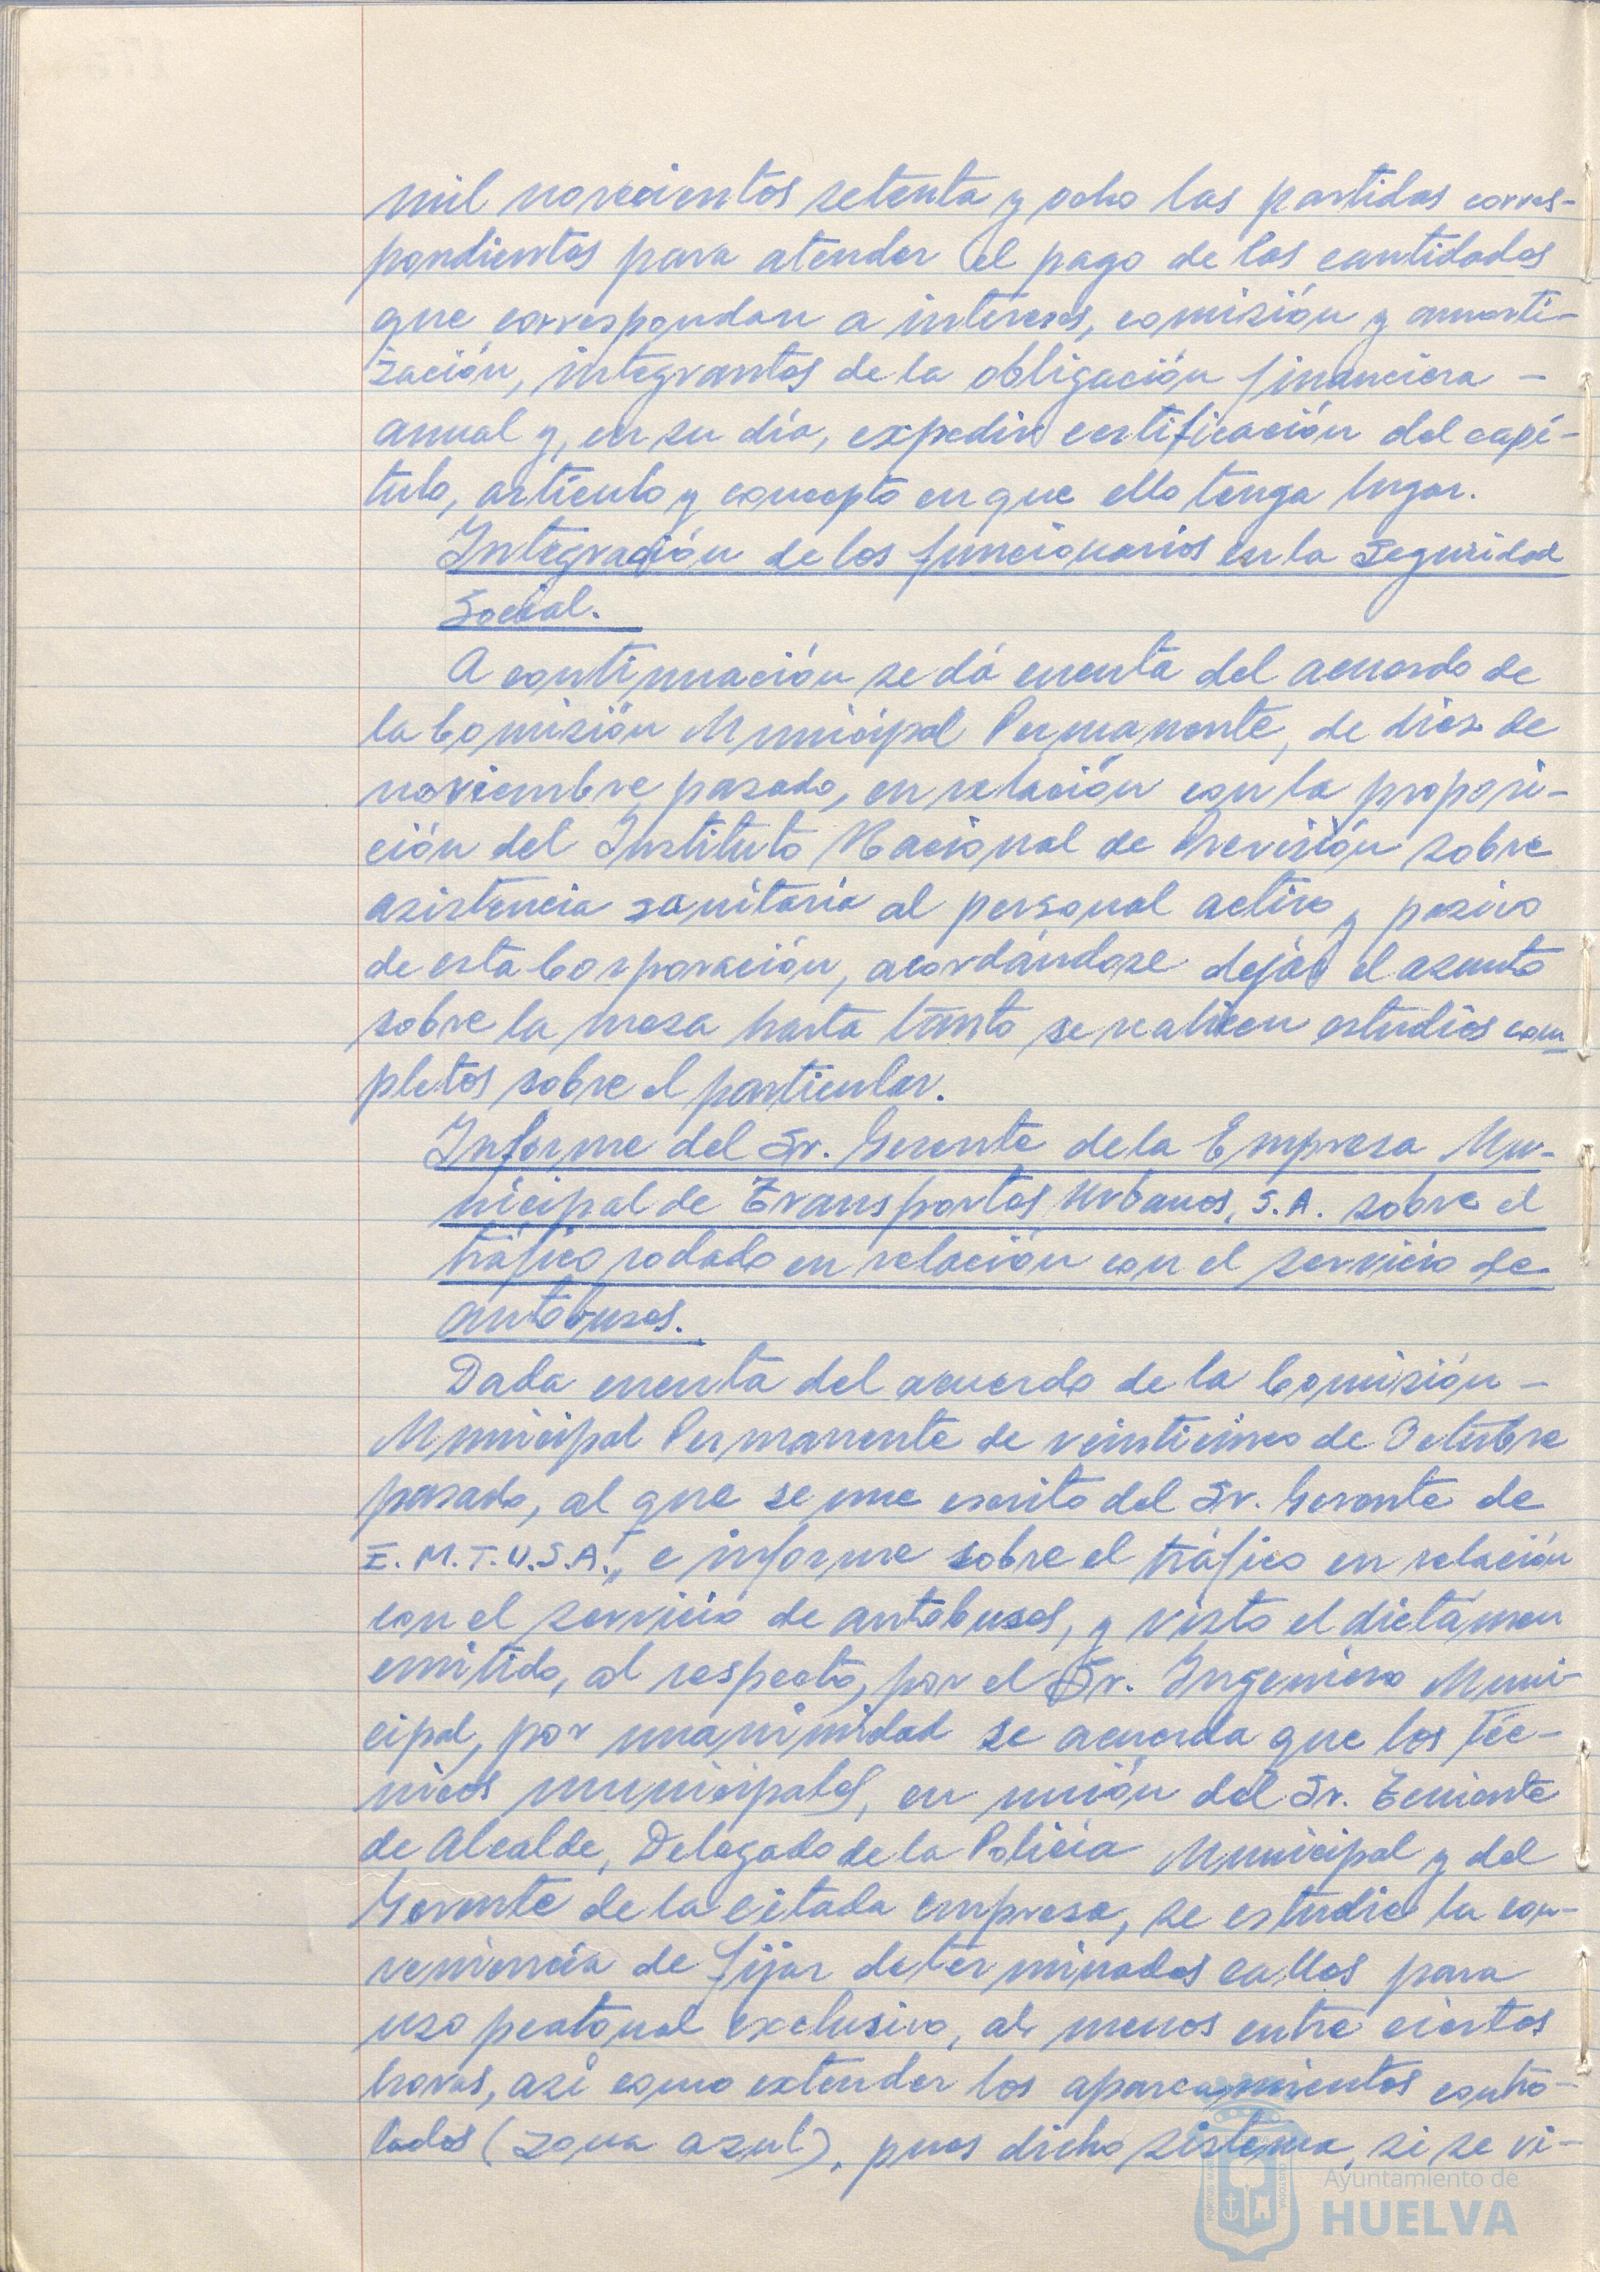 mil novecientos setenta y ocho las partidas corres-
pondientes para atender el pago de las cantidades
que correspondan a intereses, comisión y amorti-
zación, integrantes de la obligación financiera -
anual y, en su día, expedir certificación del capí-
tulo, artículo y concepto en que ello tenga lugar.
Integración de los funcionarios en la Seguridad
Social.
A continuación se dá cuenta del acuerdo de
la Comisión Municipal Permanente, de diez de
noviembre pasado, en relación con la proposi-
ción del Instituto Nacional de Previsión sobre
asistencia sanitaria al personal activo y pasivo
de esta Corporación, acordándose dejar el asunto
sobre la mesa hasta tanto se realicen estudios com-
pletos sobre el particular.
Informe del Sr. Gerente de la Empresa Mu-
nicipal de Transportes Urbanos, S.A. sobre el
tráfico rodado en relación con el servicio de
autobuses.
Dada cuenta del acuerdo de la Comisión -
Municipal Permanente de veinticinco de Octubre
pasado, al que se une escrito del Sr. Gerente de
E.M.T.U.S.A., e informe sobre el tráfico en relación
con el servicio de autobuses, y visto el dictámen
emitido, al respecto, por el Sr. Ingeniero Muni-
cipal, por unanimidad se acuerda que los Téc-
nicos municipales, en unión del Sr. Teniente
de Alcalde, Delegado de la Policía Municipal y del
Gerente de la citada empresa, se estudie la con-
veniencia de fijar determinadas calles para
uso peatonal exclusivo, al menos entre ciertas
horas, asi como extender los aparcamientos contro-
lados (zona azul), pues dicho sistema, si se vi-
Ayuntamiento de
HUELVA